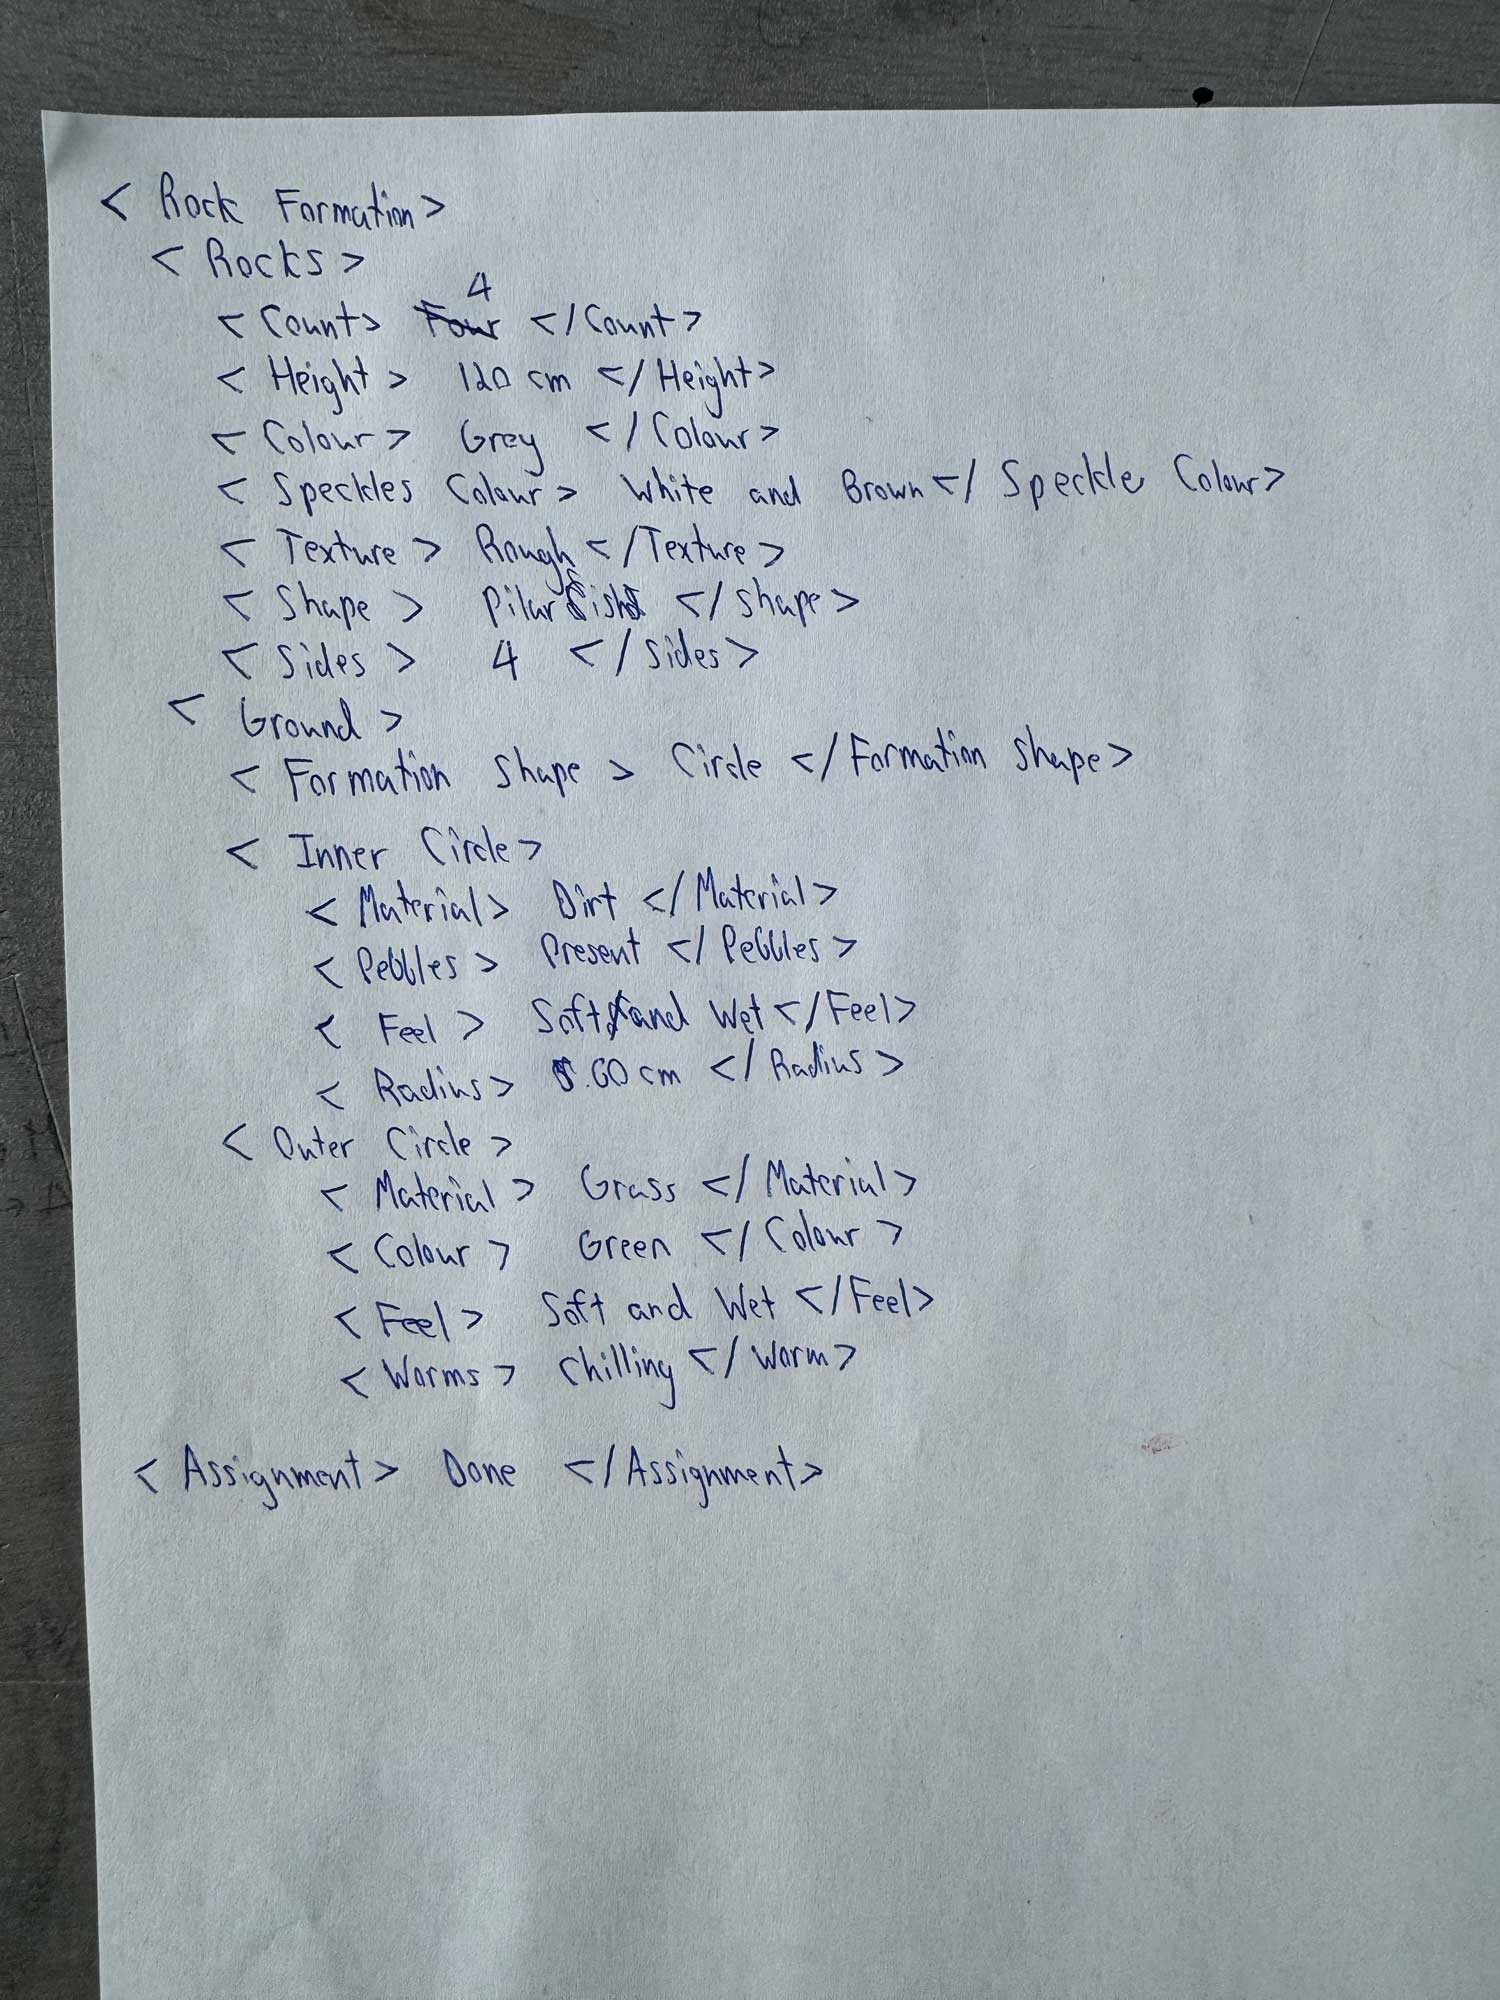 < Rock Formation>
< Rocks >
< Count> 4 </Count>
< Height > 120 cm </ Height>
< Colour > Grey </ Colour>
< Speckles Colour > White and Brown </ Speckle Colour>
< Texture > Rough </Texture >
< Shape > </ Shape >
< Sides > 4 </ Sides >
< Ground >
< Formation Shape > Circle </ Formation Shape >
< Inner Circle >
< Material > Dirt </ Material >
< Pebbles > Present </ Pebbles >
< Feel > Soft and Wet </ Feel>
< Radius > .60 cm </ Radius >
< Outer Circle >
< Material > Grass </ Material >
< Colour > Green </ Colour >
< Feel > Soft and Wet </ Feel>
< Worms > Chilling </ Worm >
< Assignment > Done </ Assignment>